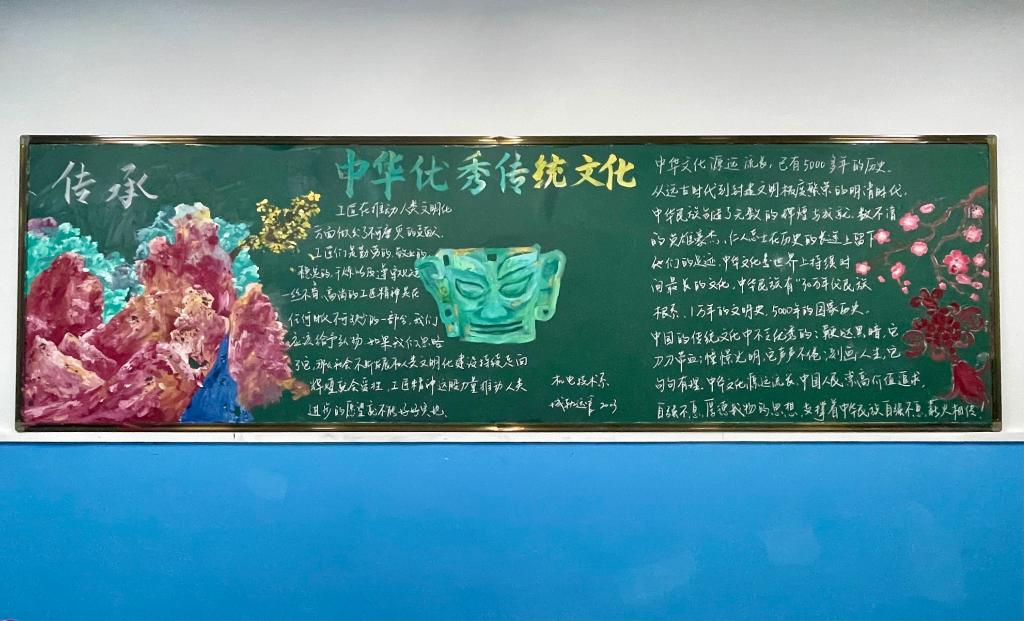 传承
中华优秀传统文化
工匠在推动人类文明化
方面做出了不可磨灭的贡献、
工匠们是勤劳的、敬业的、
稳重的、
一丝不苟、高尚的工匠精神是在
任何时候不可缺的一部分，我们
应该给予弘扬，如果我们忽略
了它，那么社会不断发展和人类文明化建设持续走向
辉煌就会受挫、工匠精神这股力量推动人类
进步的愿望就不能好好实现。
机电技术系
城轨运营 2203
中华文化源远流长，已有5000多年的历史。
从远古时代到封建文明极度繁荣的明清时代，
中华民族创造了无数的辉煌与成就，数不清
的英雄豪杰、仁人志士在历史的长途上留下
他们的足迹，中华文化是世界上持续时
间最长的文化，中华民族有"30万年代民族
根系、1万年的文明史、5000年的国家历史。
中国的传统文化中不乏优秀的：鞭挞黑暗，它
刀刀带血；憧憬光明，它声声不倦；刻画人生，它
句句有理，中华文化源远流长，中国人民崇高价值追求，
自强不息，厚德载物的思想，支撑着中华民族自强不息，薪火相传！